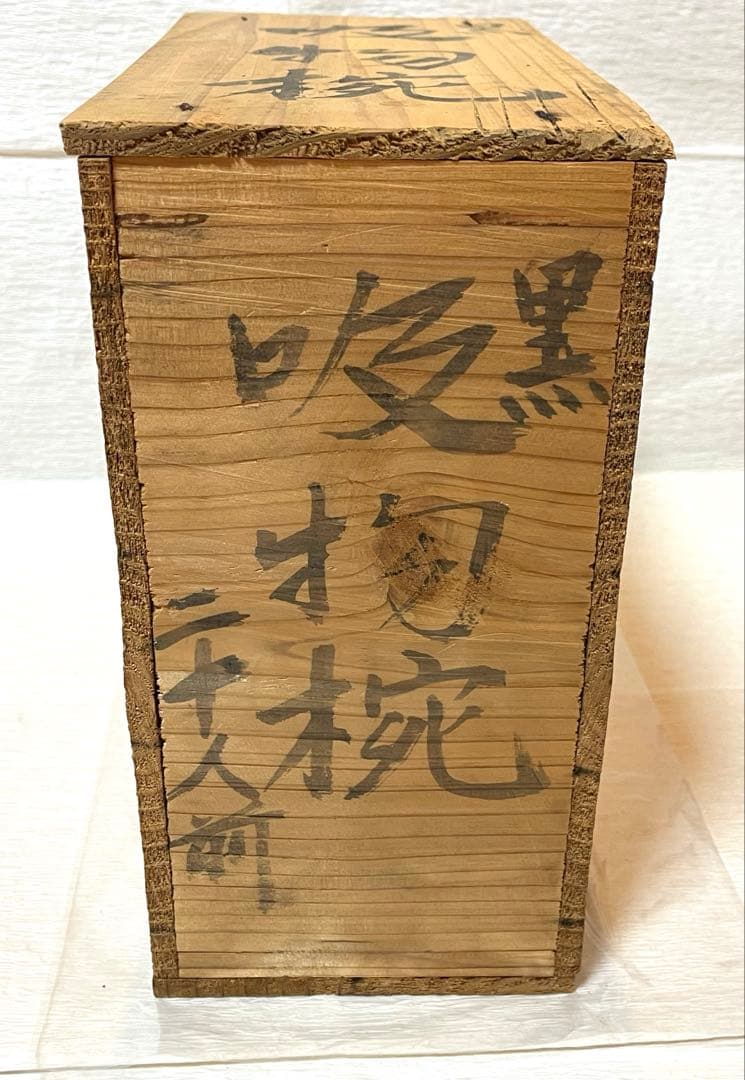 吸物椀
黒
吸物椀
二十人前